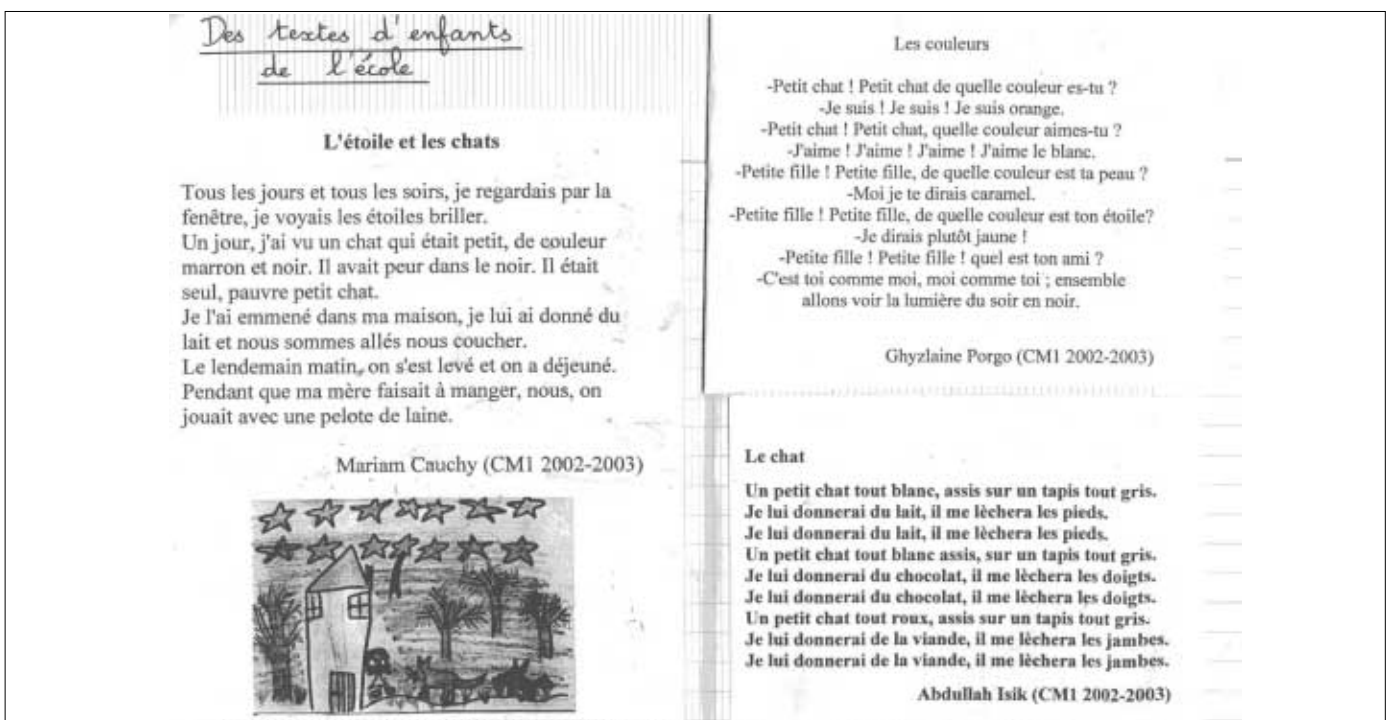 Des textes d'enfants
de l'école
L'étoile et les chats
Tous les jours et tous les soirs, je regardais par la
fenêtre, je voyais les étoiles briller.
Un jour, j'ai vu un chat qui était petit, de couleur
marron et noir. Il avait peur dans le noir. Il était
seul, pauvre petit chat.
Je l'ai emmené dans ma maison, je lui ai donné du
lait et nous sommes allés nous coucher.
Le lendemain matin, on s'est levé et on a déjeuné.
Pendant que ma mère faisait à manger, nous, on
jouait avec une pelote de laine.
Mariam Cauchy (CM1 2002-2003)
Les couleurs
-Petit chat ! Petit chat de quelle couleur es-tu ?
-Je suis ! Je suis ! Je suis orange.
-Petit chat ! Petit chat, quelle couleur aimes-tu ?
-J'aime ! J'aime ! J'aime ! J'aime le blanc.
-Petite fille ! Petite fille, de quelle couleur est ta peau ?
-Moi je te dirais caramel.
-Petite fille ! Petite fille, de quelle couleur est ton étoile?
-Je dirais plutôt jaune !
-Petite fille ! Petite fille ! quel est ton ami ?
-C'est toi comme moi, moi comme toi ; ensemble
allons voir la lumière du soir en noir.
Ghyzlaine Porgo (CM1 2002-2003)
Le chat
Un petit chat tout blanc, assis sur un tapis tout gris.
Je lui donnerai du lait, il me lèchera les pieds.
Je lui donnerai du lait, il me lèchera les pieds.
Un petit chat tout blanc assis, sur un tapis tout gris.
Je lui donnerai du chocolat, il me lèchera les doigts.
Je lui donnerai du chocolat, il me lèchera les doigts.
Un petit chat tout roux, assis sur un tapis tout gris.
Je lui donnerai de la viande, il me lèchera les jambes.
Je lui donnerai de la viande, il me lèchera les jambes.
Abdullah Isik (CM1 2002-2003)